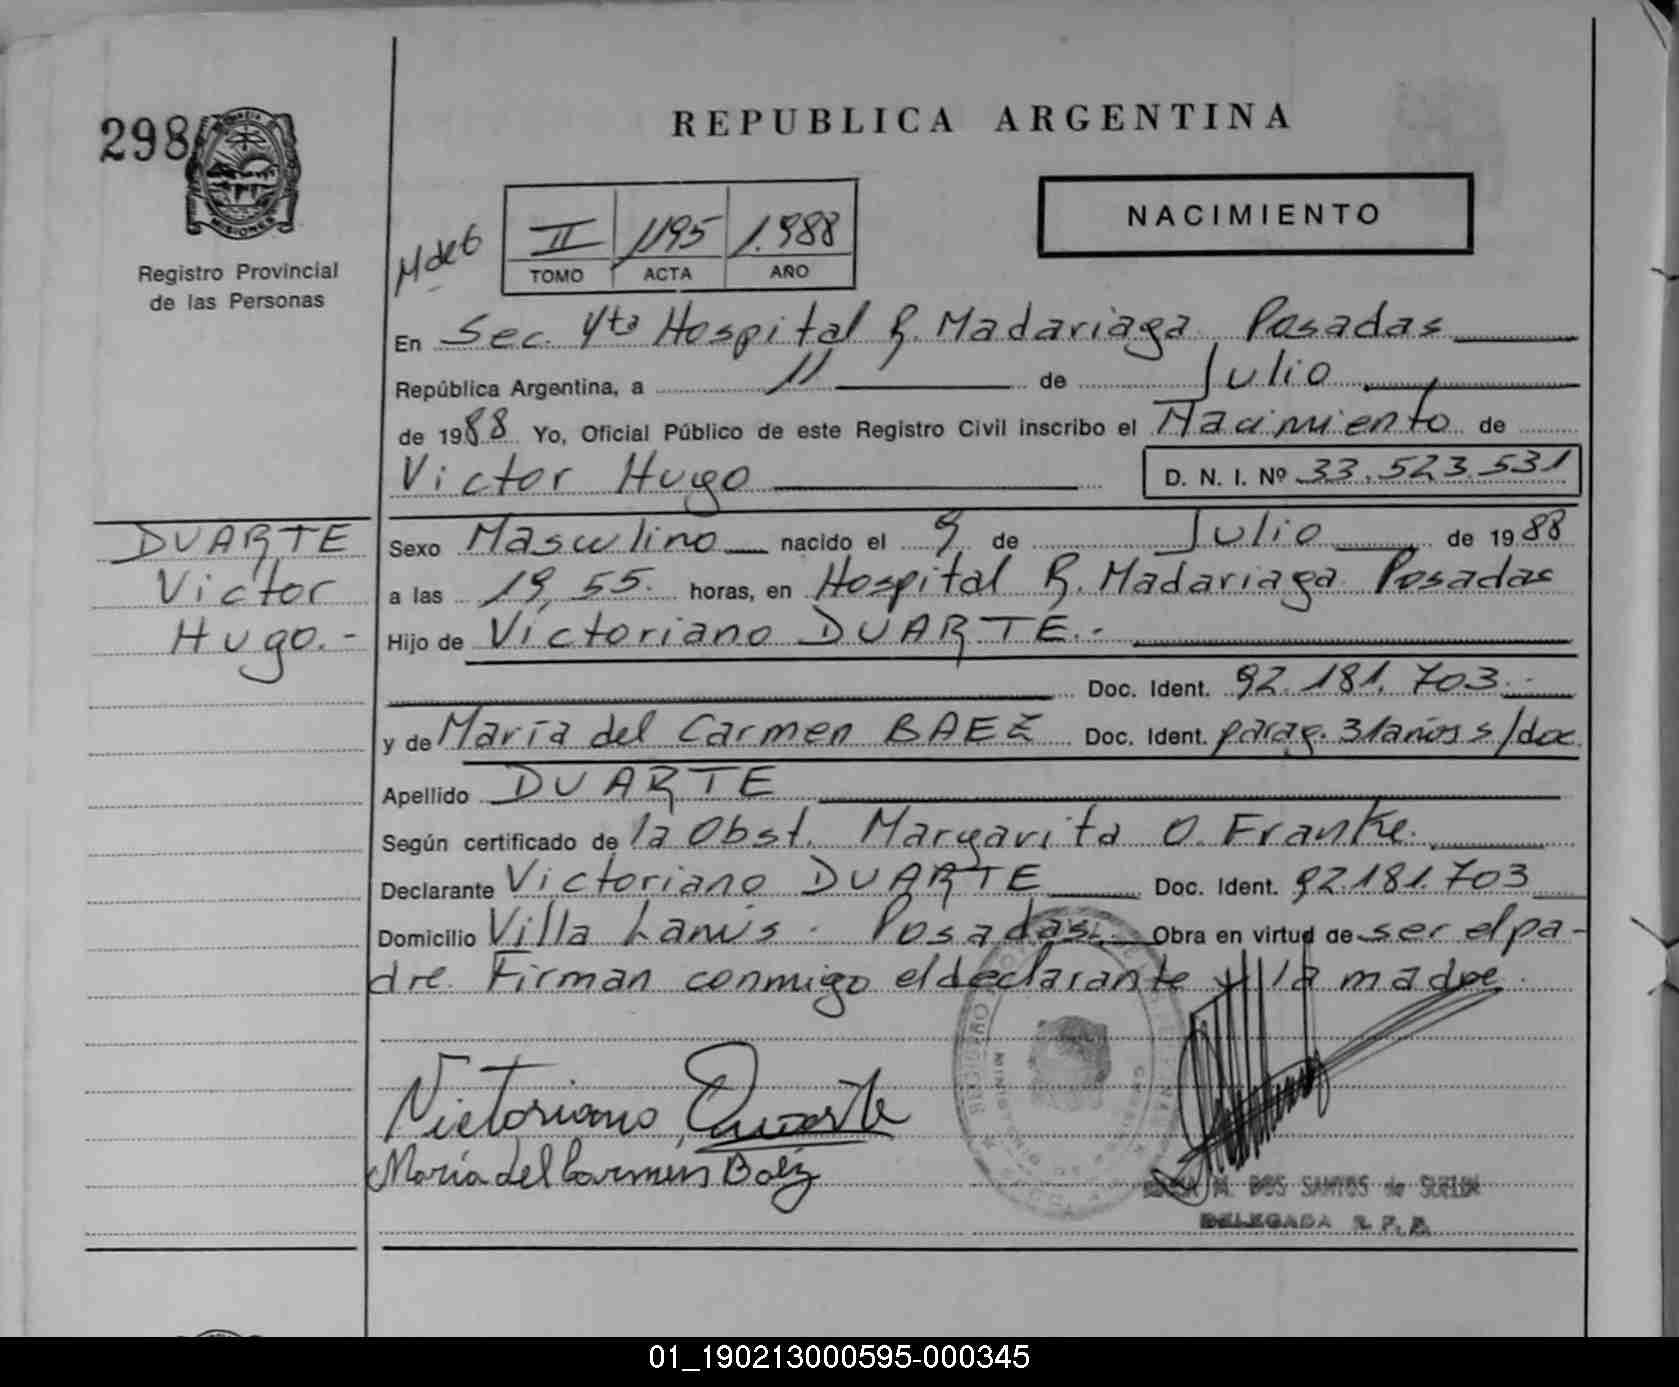 REPUBLICA ARGENTINA
298
MISIONES
Registro Provincial
de las Personas
NACIMIENTO
II 1195 1.988
TOMO ACTA AÑO
En Sec. 4ta Hospital R. Madariaga Posadas
República Argentina, a 11 de Julio
de 1988 Yo, Oficial Público de este Registro Civil inscribo el Nacimiento de
Victor Hugo D. N. I. Nº 33.523.531
DUARTE
Victor
Hugo.-
Sexo Masculino nacido el 9 de Julio de 1988
a las 19,55. horas, en Hospital R. Madariaga Posadas
Hijo de Victoriano DUARTE.-
Doc. Ident. 92.181.703.-
y de María del Carmen BAEZ Doc. Ident. parag. 31años s/doc
Apellido DUARTE
Según certificado de la Obst. Margarita O. Franke.
Declarante Victoriano DUARTE Doc. Ident. 92.181.703
Domicilio Villa Lanús. Posadas. Obra en virtud de ser el pa-
dre. Firman conmigo el declarante y la madre.
Victoriano Duarte
María del Carmen Baéz
M. DOS SANTOS de
DELEGADA R. P. P.
01_190213000595-000345